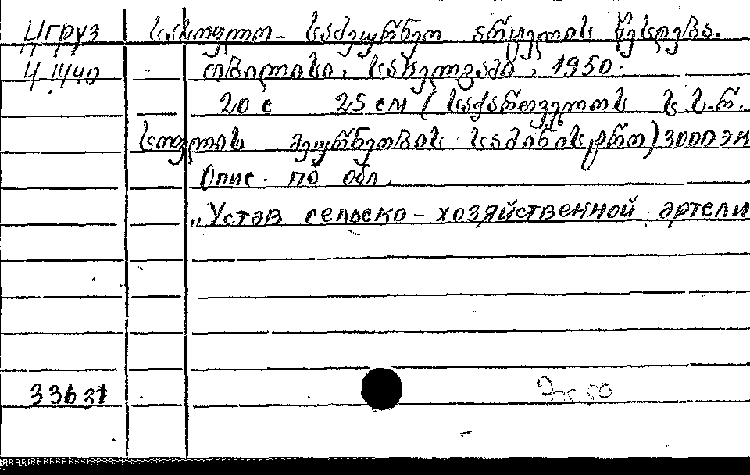 Цгруз სასოფლო-სამეურნეო არტელის წესდება.
4.1440 თბილისი, სახელგამი, 1950.
20 с 25 см (საქართველოს ს.ს.რ.
სოფლის მეურნეობის სამინისტრო) 3000 эк
Опис. по обл.
„Устав сельско-хозяйственной артели
33631